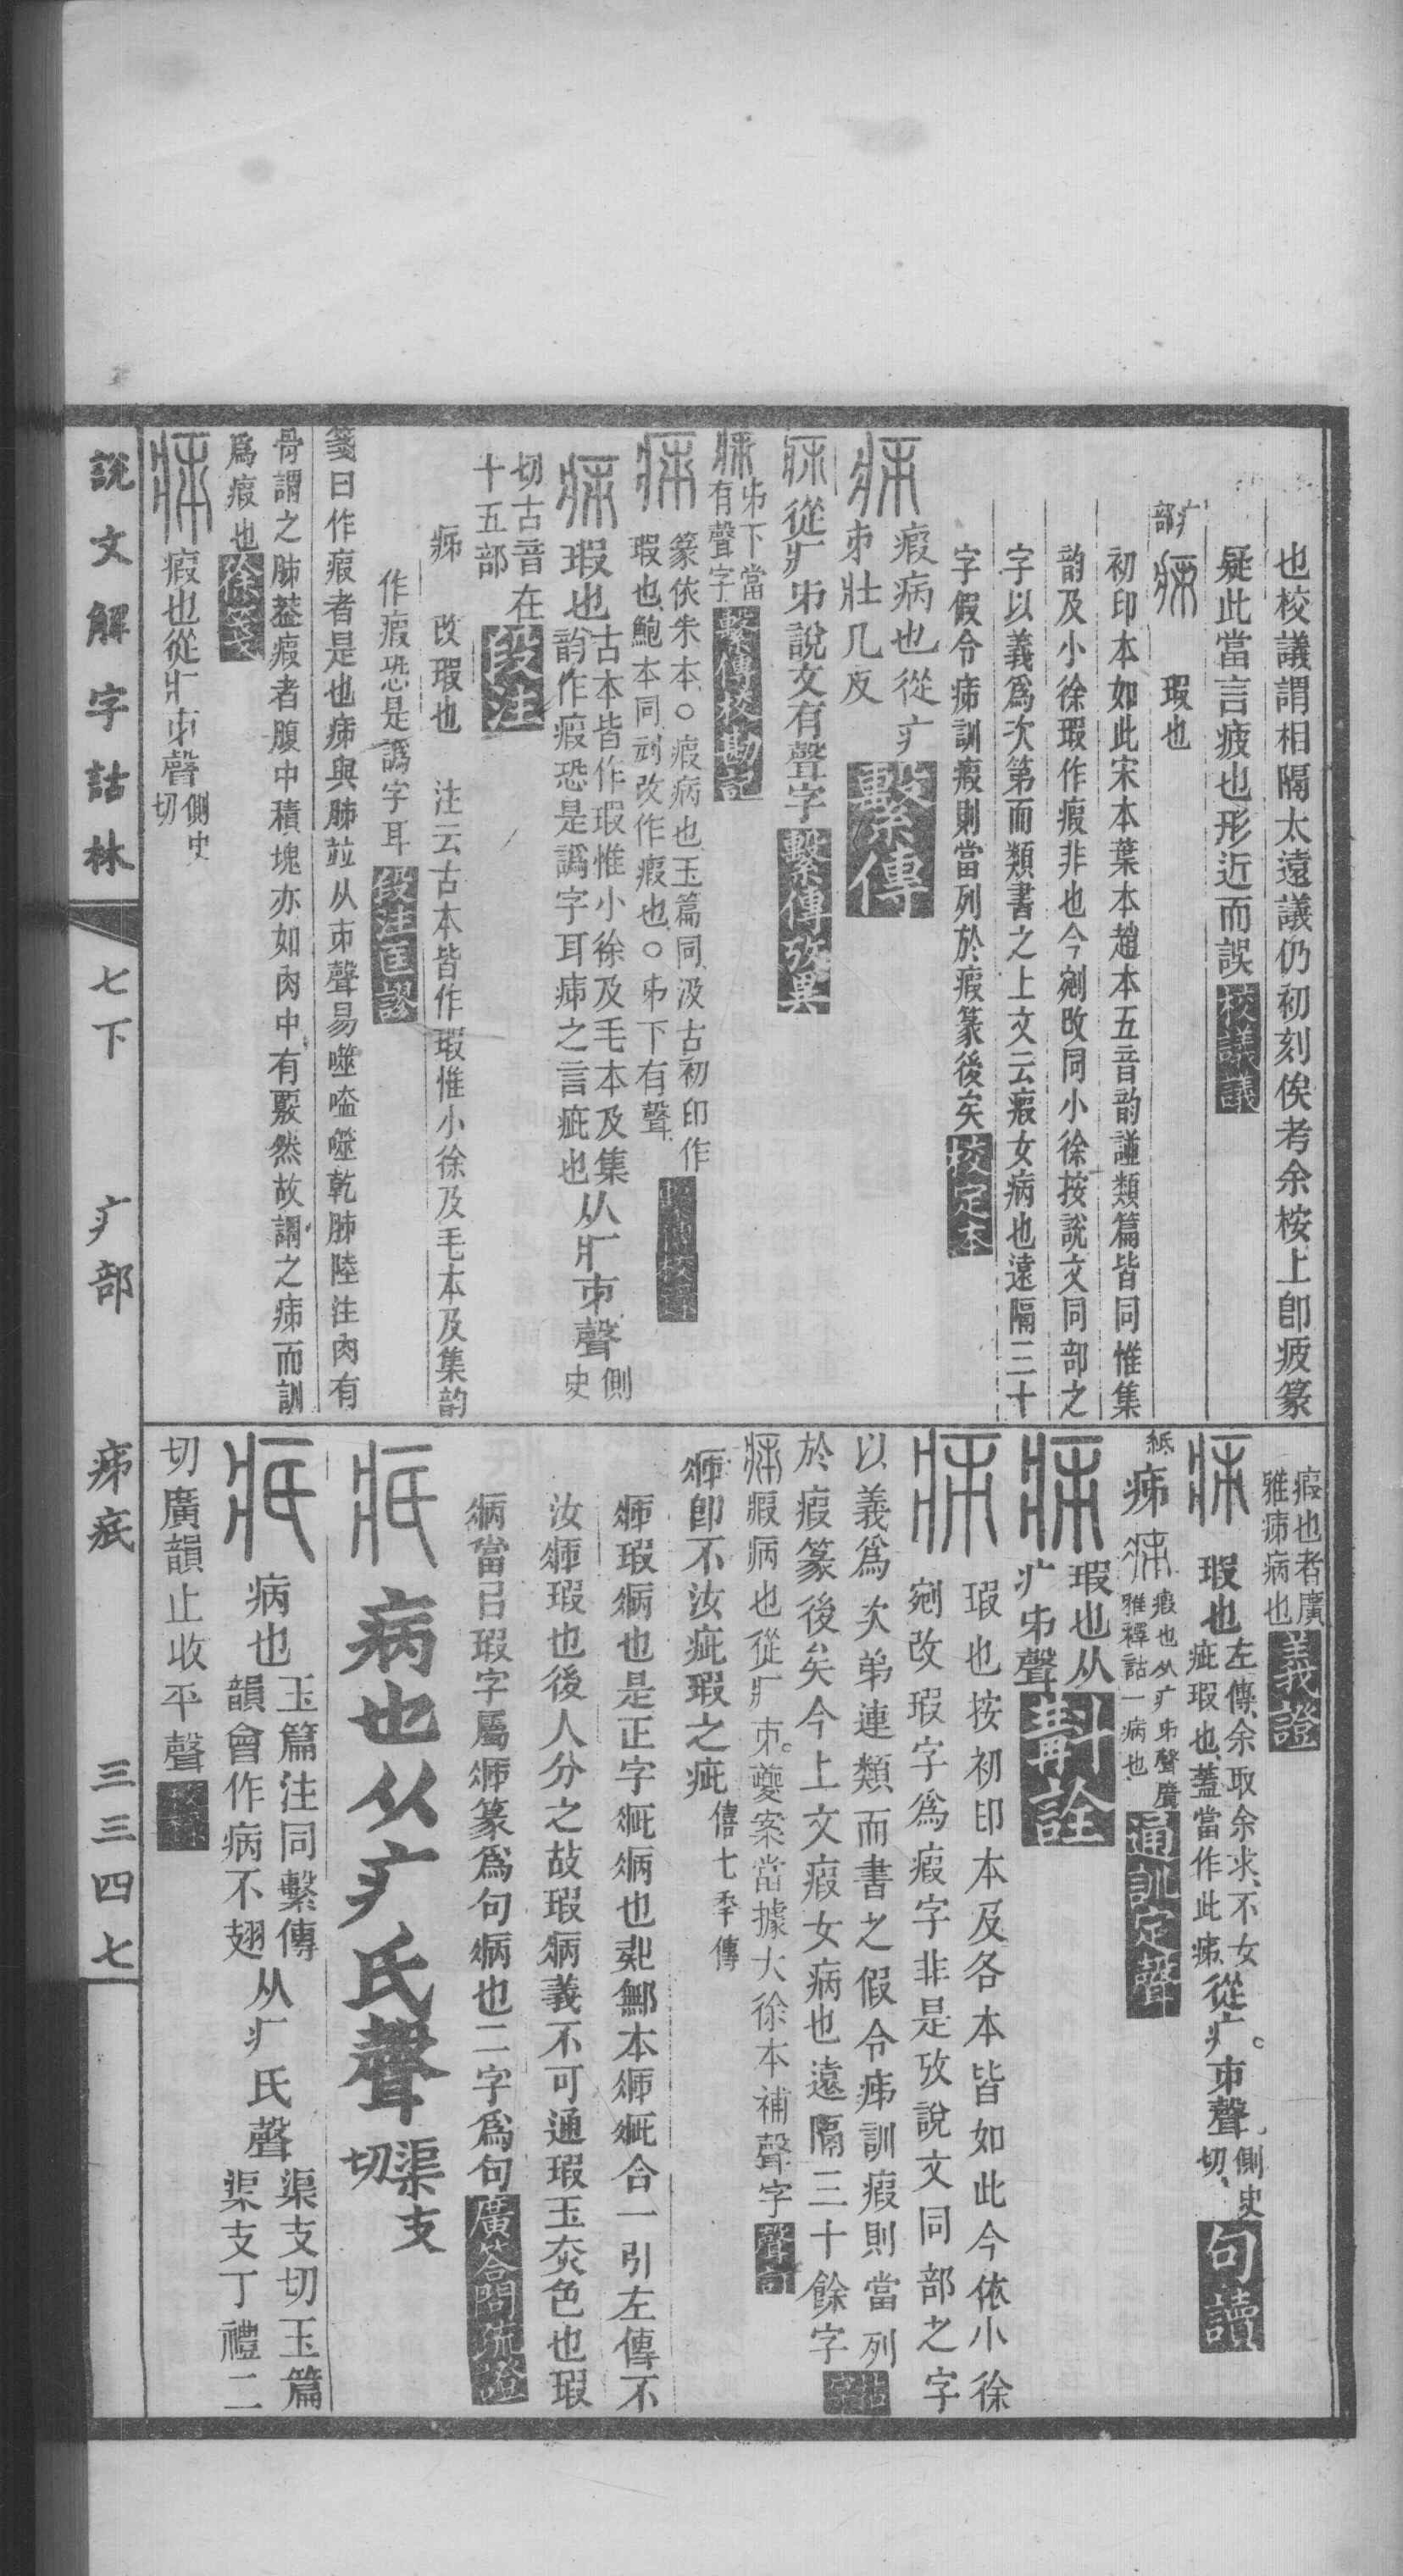 也校議謂相隔太遠議仍初刻俟考余桉上卽疲篆
疑此當言疲也形近而誤校議議
疒部 𤵸 瑕也
初印本如此宋本葉本趙本五音韵譜類篇皆同惟集
韵及小徐瑕作瘕非也今剜改同小徐按說文同部之
字以義爲次第而類書之上文云瘕女病也遠隔三十
字假令𤵸訓瘕則當列於瘕篆後矣校定本
瘕病也從疒
𠂔壯几反
繫傳
𤵸從疒𠂔說文有聲字繫傳攷異
𤵸𠂔下當
有聲字
繫傳校勘記
篆依朱本○瘕病也玉篇同汲古初印作
瑕也鮑本同剜改作瘕也○𠂔下有聲
𤵸瑕也
古本皆作瑕惟小徐及毛本及集
韵作瘕恐是譌字耳𤵸之言疵也
从疒𠂔聲
側史
切古音在
十五部
段注
𤵸 改瑕也 注云古本皆作瑕惟小徐及毛本及集韵
作瘕恐是譌字耳段注匡謬
箋曰作瘕者是也𤵸與胏竝从𠂔聲易噬嗑噬乾胏陸注肉有
骨謂之胏葢瘕者腹中積塊亦如肉中有覈然故謂之𤵸而訓
爲瘕也徐箋
𤵸瘕也從疒𠂔聲
側史
切
瘕也者廣
雅𤵸病也
義證
𤵸瑕也
左傳余取余求不女
疵瑕也蓋當作此𤵸
從疒。𠂔聲
側史
切
句讀
紙 𤵸
瘕也从疒𠂔聲廣
雅釋詁一病也
通訓定聲
瑕也从
疒𠂔聲
斠詮
瑕也按初印本及各本皆如此今依小徐
剜改瑕字爲瘕字非是攷說文同部之字
以義爲次弟連類而書之假令𤵸訓瘕則當列
於瘕篆後矣今上文瘕女病也遠隔三十餘字
𤵸瘕病也從疒𠂔。夔案當據大徐本補聲字聲訂
𤵸卽不汝疵瑕之疵僖七年傳
𤵸瑕病也是正字疵病也
本𤵸疵合一引左傳不
汝𤵸瑕也後人分之故瑕病義不可通瑕玉
色也瑕
病當㠯瑕字屬𤵸篆爲句病也二字爲句廣答問疏證
疧 病也从疒氏聲
渠支
切
疧 病也
玉篇注同繫傳
韻會作病不翅
从疒氏聲
渠支切玉篇
渠支丁禮二
切廣韻止收平聲
說文解字詁林 七下 疒部 𤵸疧 三三四七